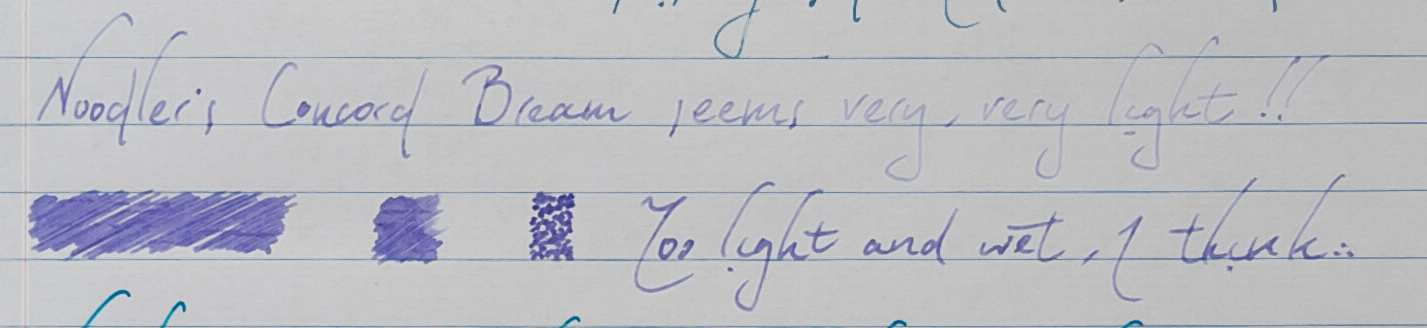 Noodler's Concord Bream seems very, very light!!
Too light and wet, I think...